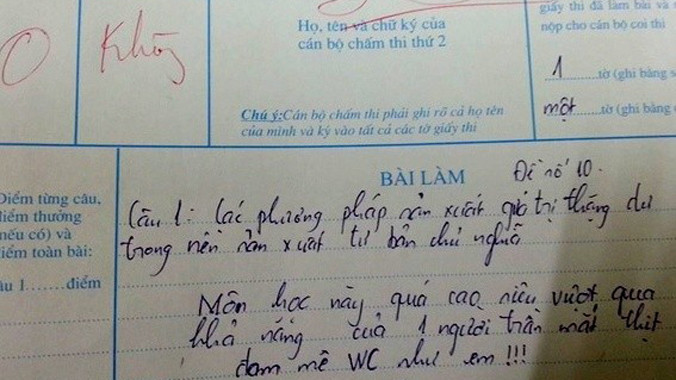 0
Không
Họ, tên và chữ ký của
cán bộ chấm thi thứ 2
Chú ý:Cán bộ chấm thi phải ghi rõ cả họ tên
của mình và ký vào tất cả các tờ giấy thi
giấy thi đã làm bài và
nộp cho cán bộ coi thi
1 tờ (ghi bằng s
một tờ (ghi bằng
BÀI LÀM
Đề số 10.
Điểm từng câu,
điểm thưởng
(nếu có) và
điểm toàn bài:
âu 1......điểm
Câu 1: Các phương pháp sản xuất giá trị thặng dư
trong nền sản xuất tư bản chủ nghĩa
Môn học này quá cao siêu vượt qua
khả năng của 1 người trần mắt thịt
đam mê WC như em !!!